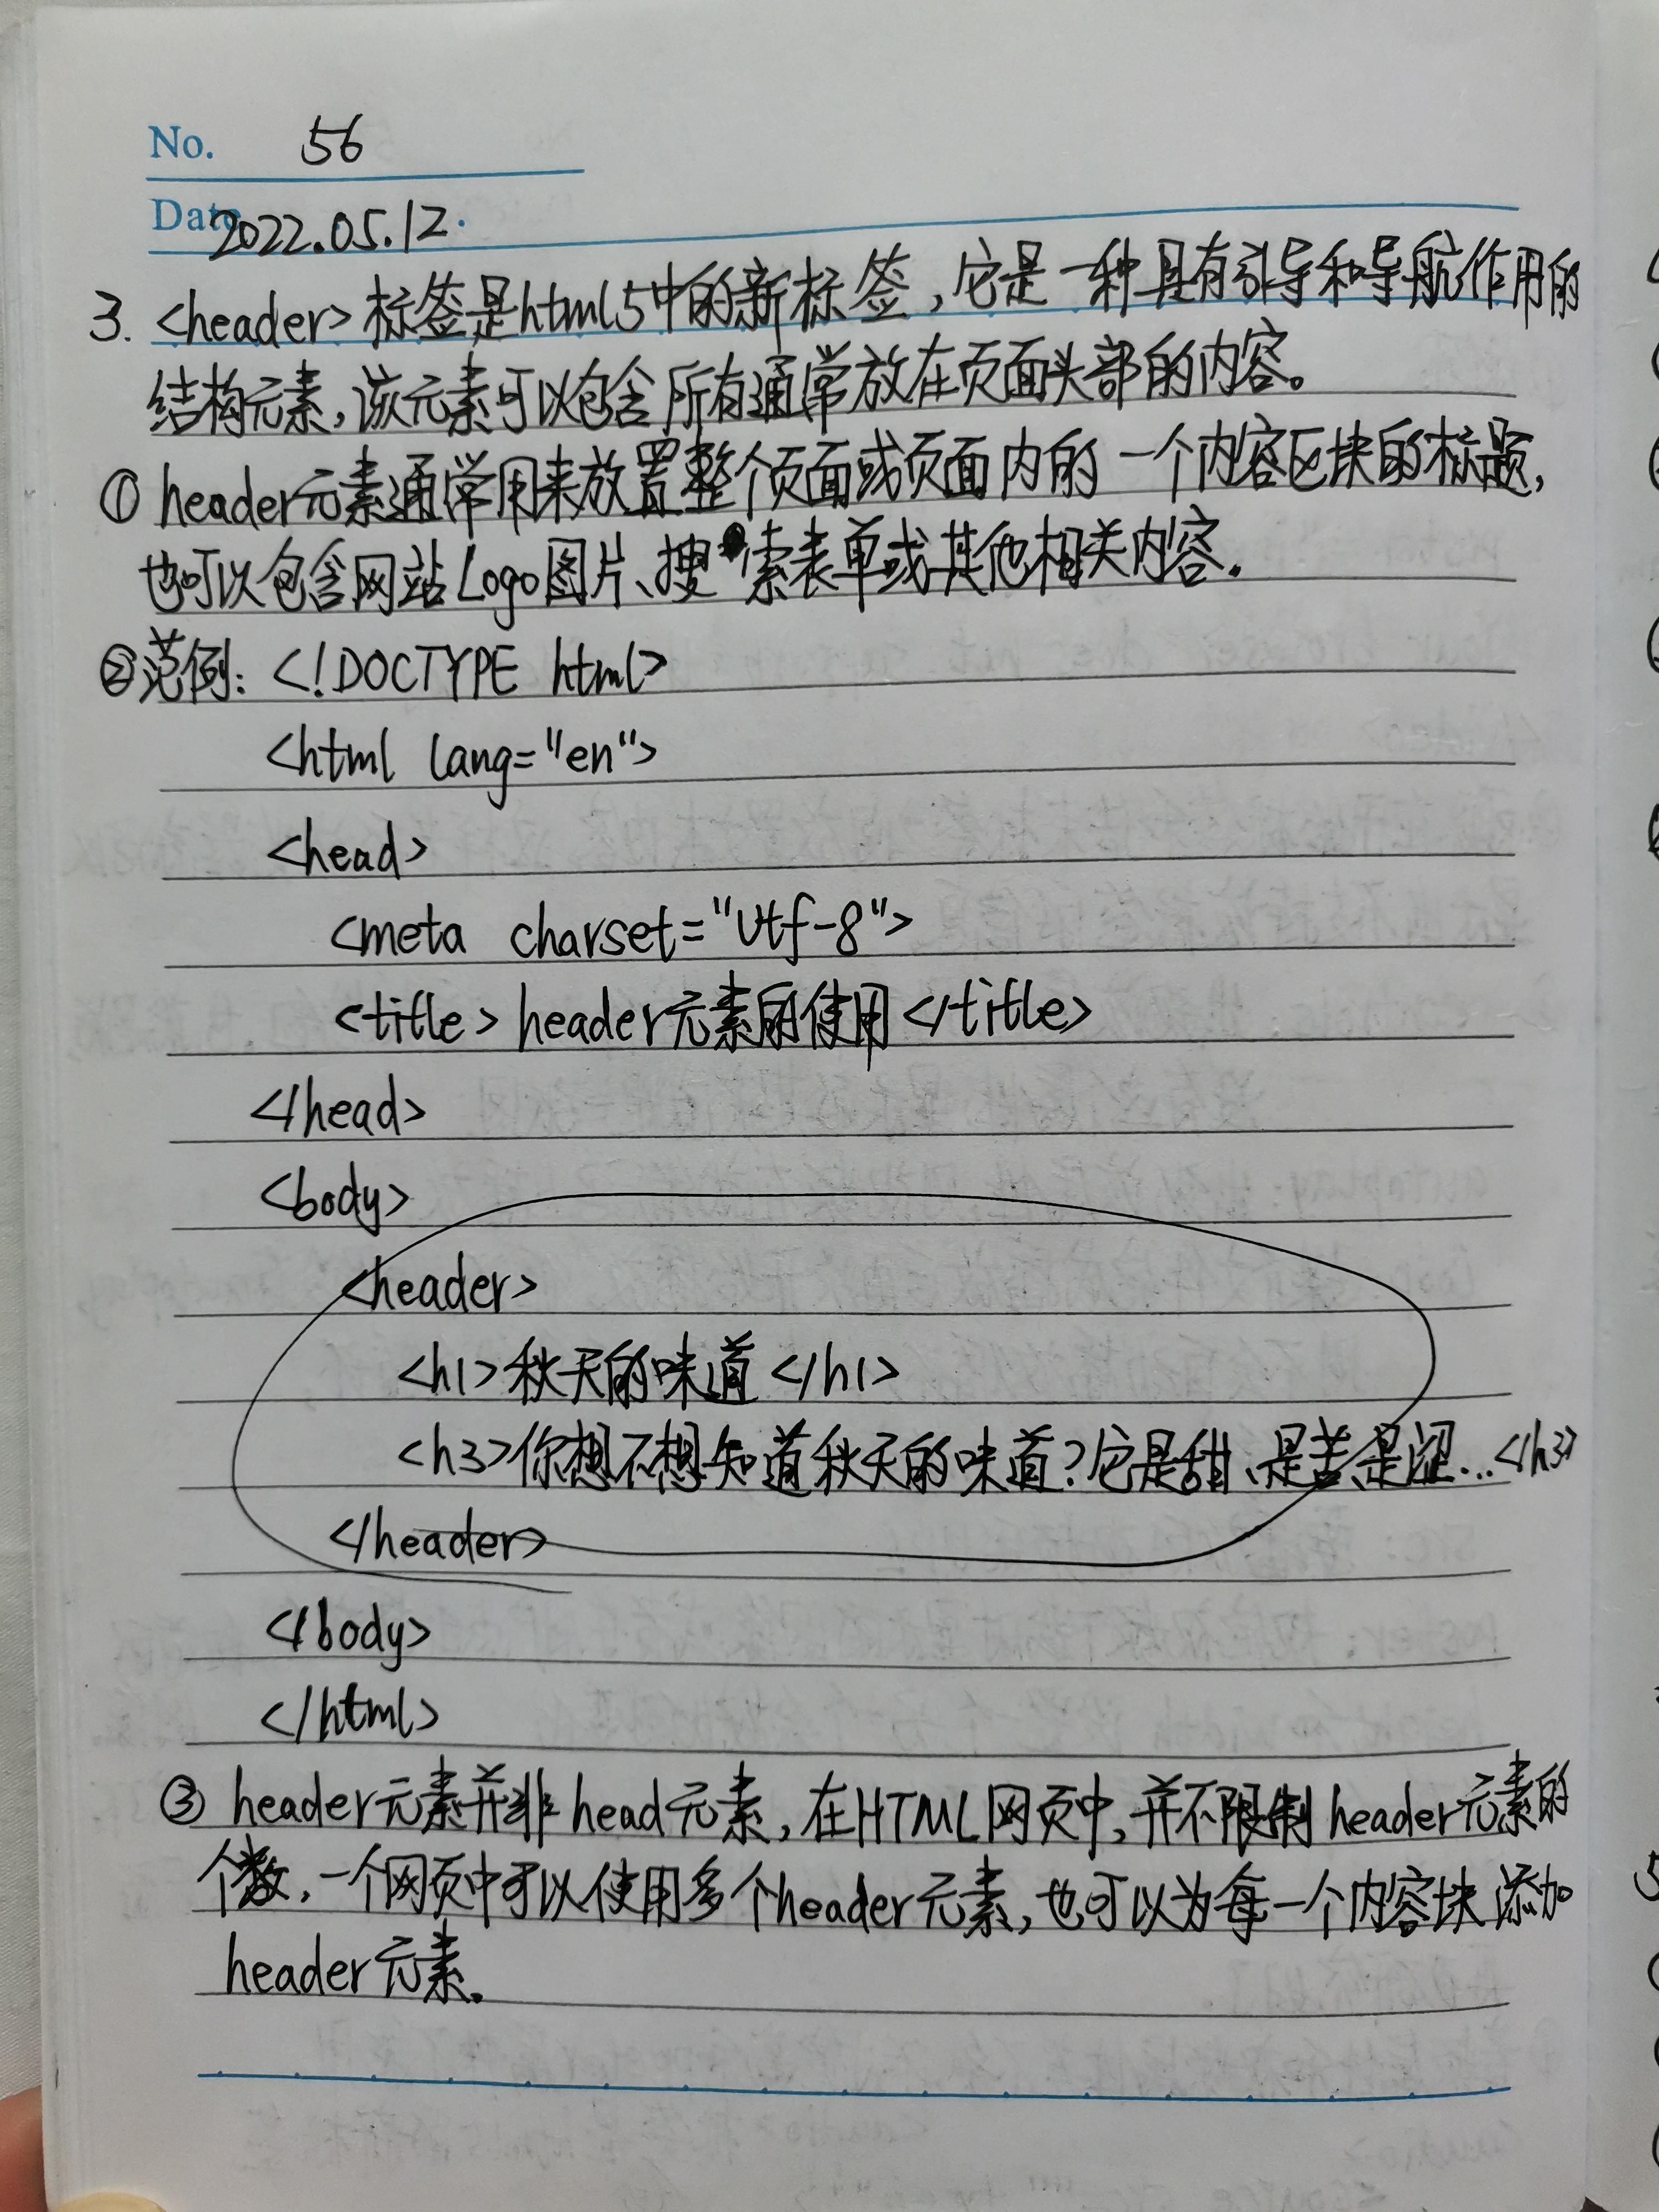 No. 56
Date 2022.05.12.
3. <header>标签是html5中的新标签，它是一种具有引导和导航作用的
结构元素，该元素可以包含所有通常放在页面头部的内容。
① header元素通常用来放置整个页面或页面内的一个内容区块的标题，
也可以包含网站Logo图片、搜索表单或其他相关内容。
②范例：<!DOCTYPE html>
<html lang="en">
<head>
<meta charset="Utf-8">
<title>header元素的使用</title>
</head>
<body>
<header>
<h1>秋天的味道</h1>
<h3>你想不想知道秋天的味道？它是甜、是苦、是涩...</h3>
</header>
</body>
</html>
③ header元素并非head元素，在HTML网页中，并不限制header元素的
个数，一个网页中可以使用多个header元素，也可以为每一个内容块添加
header元素。